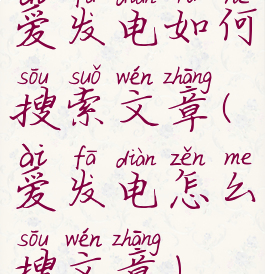 ài fā diàn rú hé
爱发电如何
sōu suǒ wén zhāng
搜索文章(
ài fā diàn zěn me
爱发电怎么
sōu wén zhāng
搜文章)